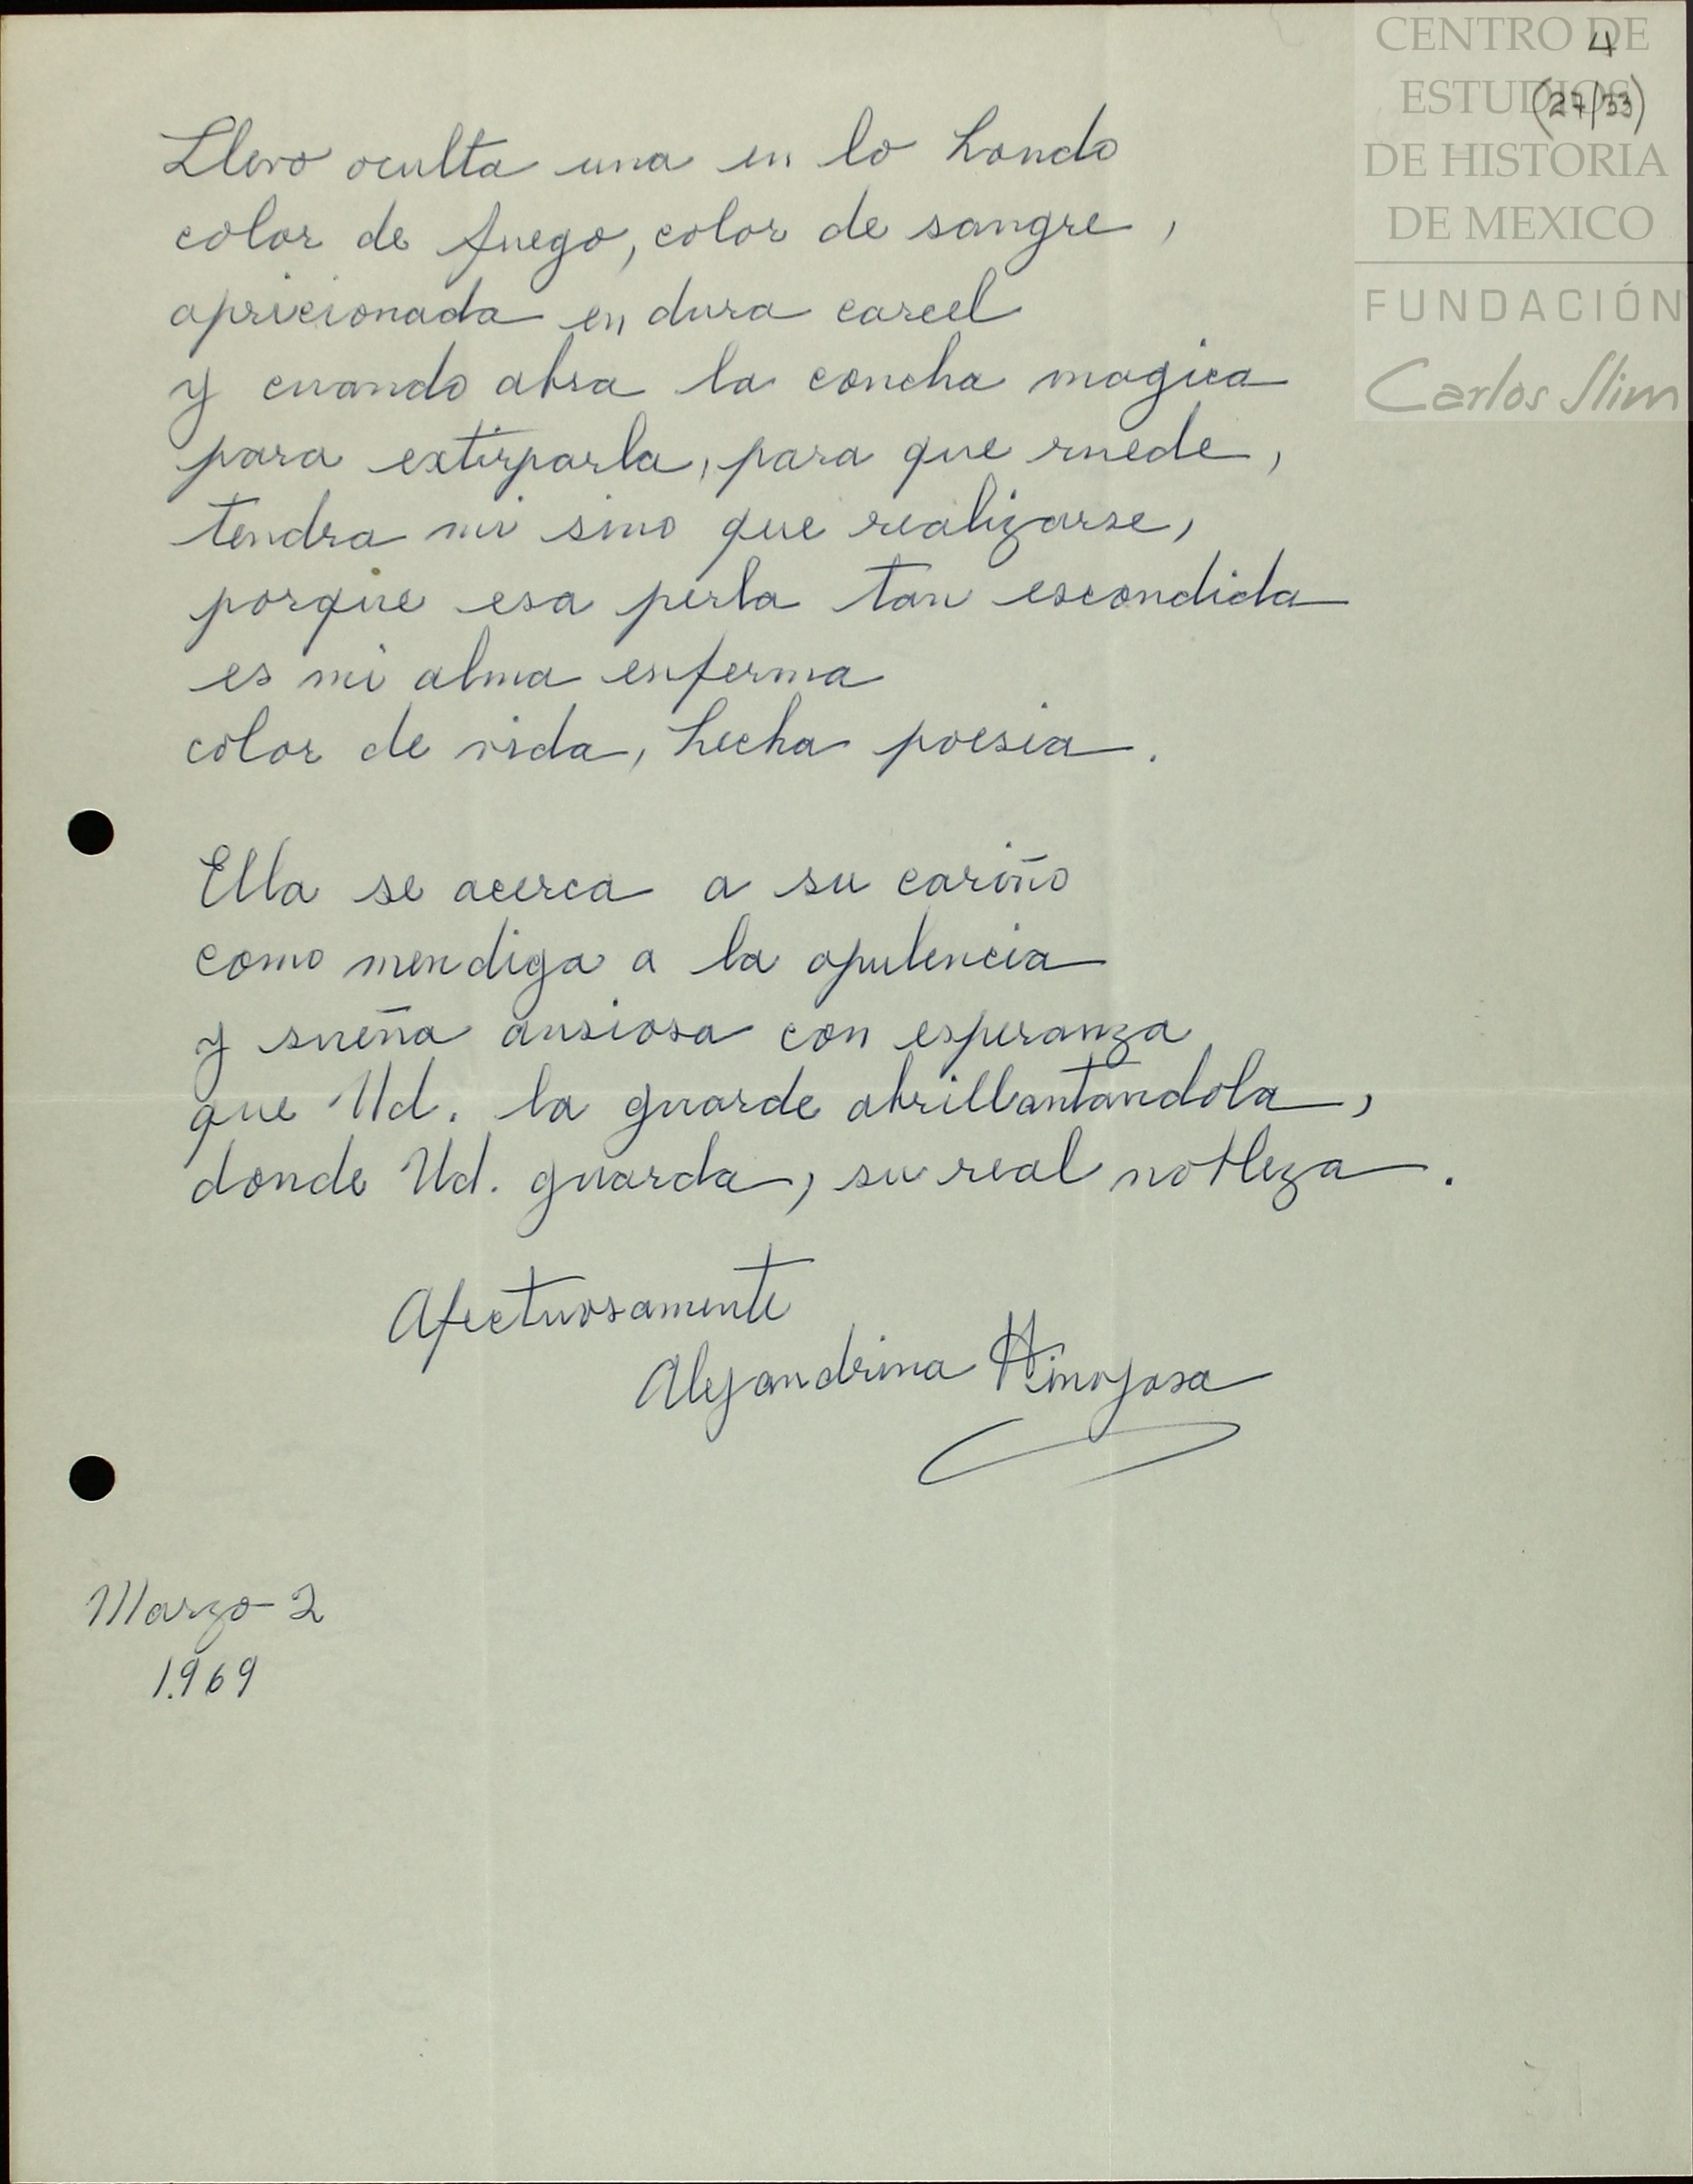 CENTRO DE
4
ESTUDIOS
(27/33)
DE HISTORIA
DE MEXICO
FUNDACIÓN
Carlos Slim
Llevo oculta una en lo hondo
color de fuego, color de sangre,
apricionada en dura carcel
y cuando abra la concha magica
para extirparla, para que ruede,
tendra mi sino que realizarse,
porque esa perla tan escondida
es mi alma enferma
color de vida, hecha poesia.
Ella se acerca a su cariño
como mendiga a la opulencia
y sueña ansiosa con esperanza
que Ud. la guarde abrillantandola,
donde Ud. guarda, su real nobleza.
Afectuosamente
Alejandrina Hinojosa
Marzo - 2
1.969